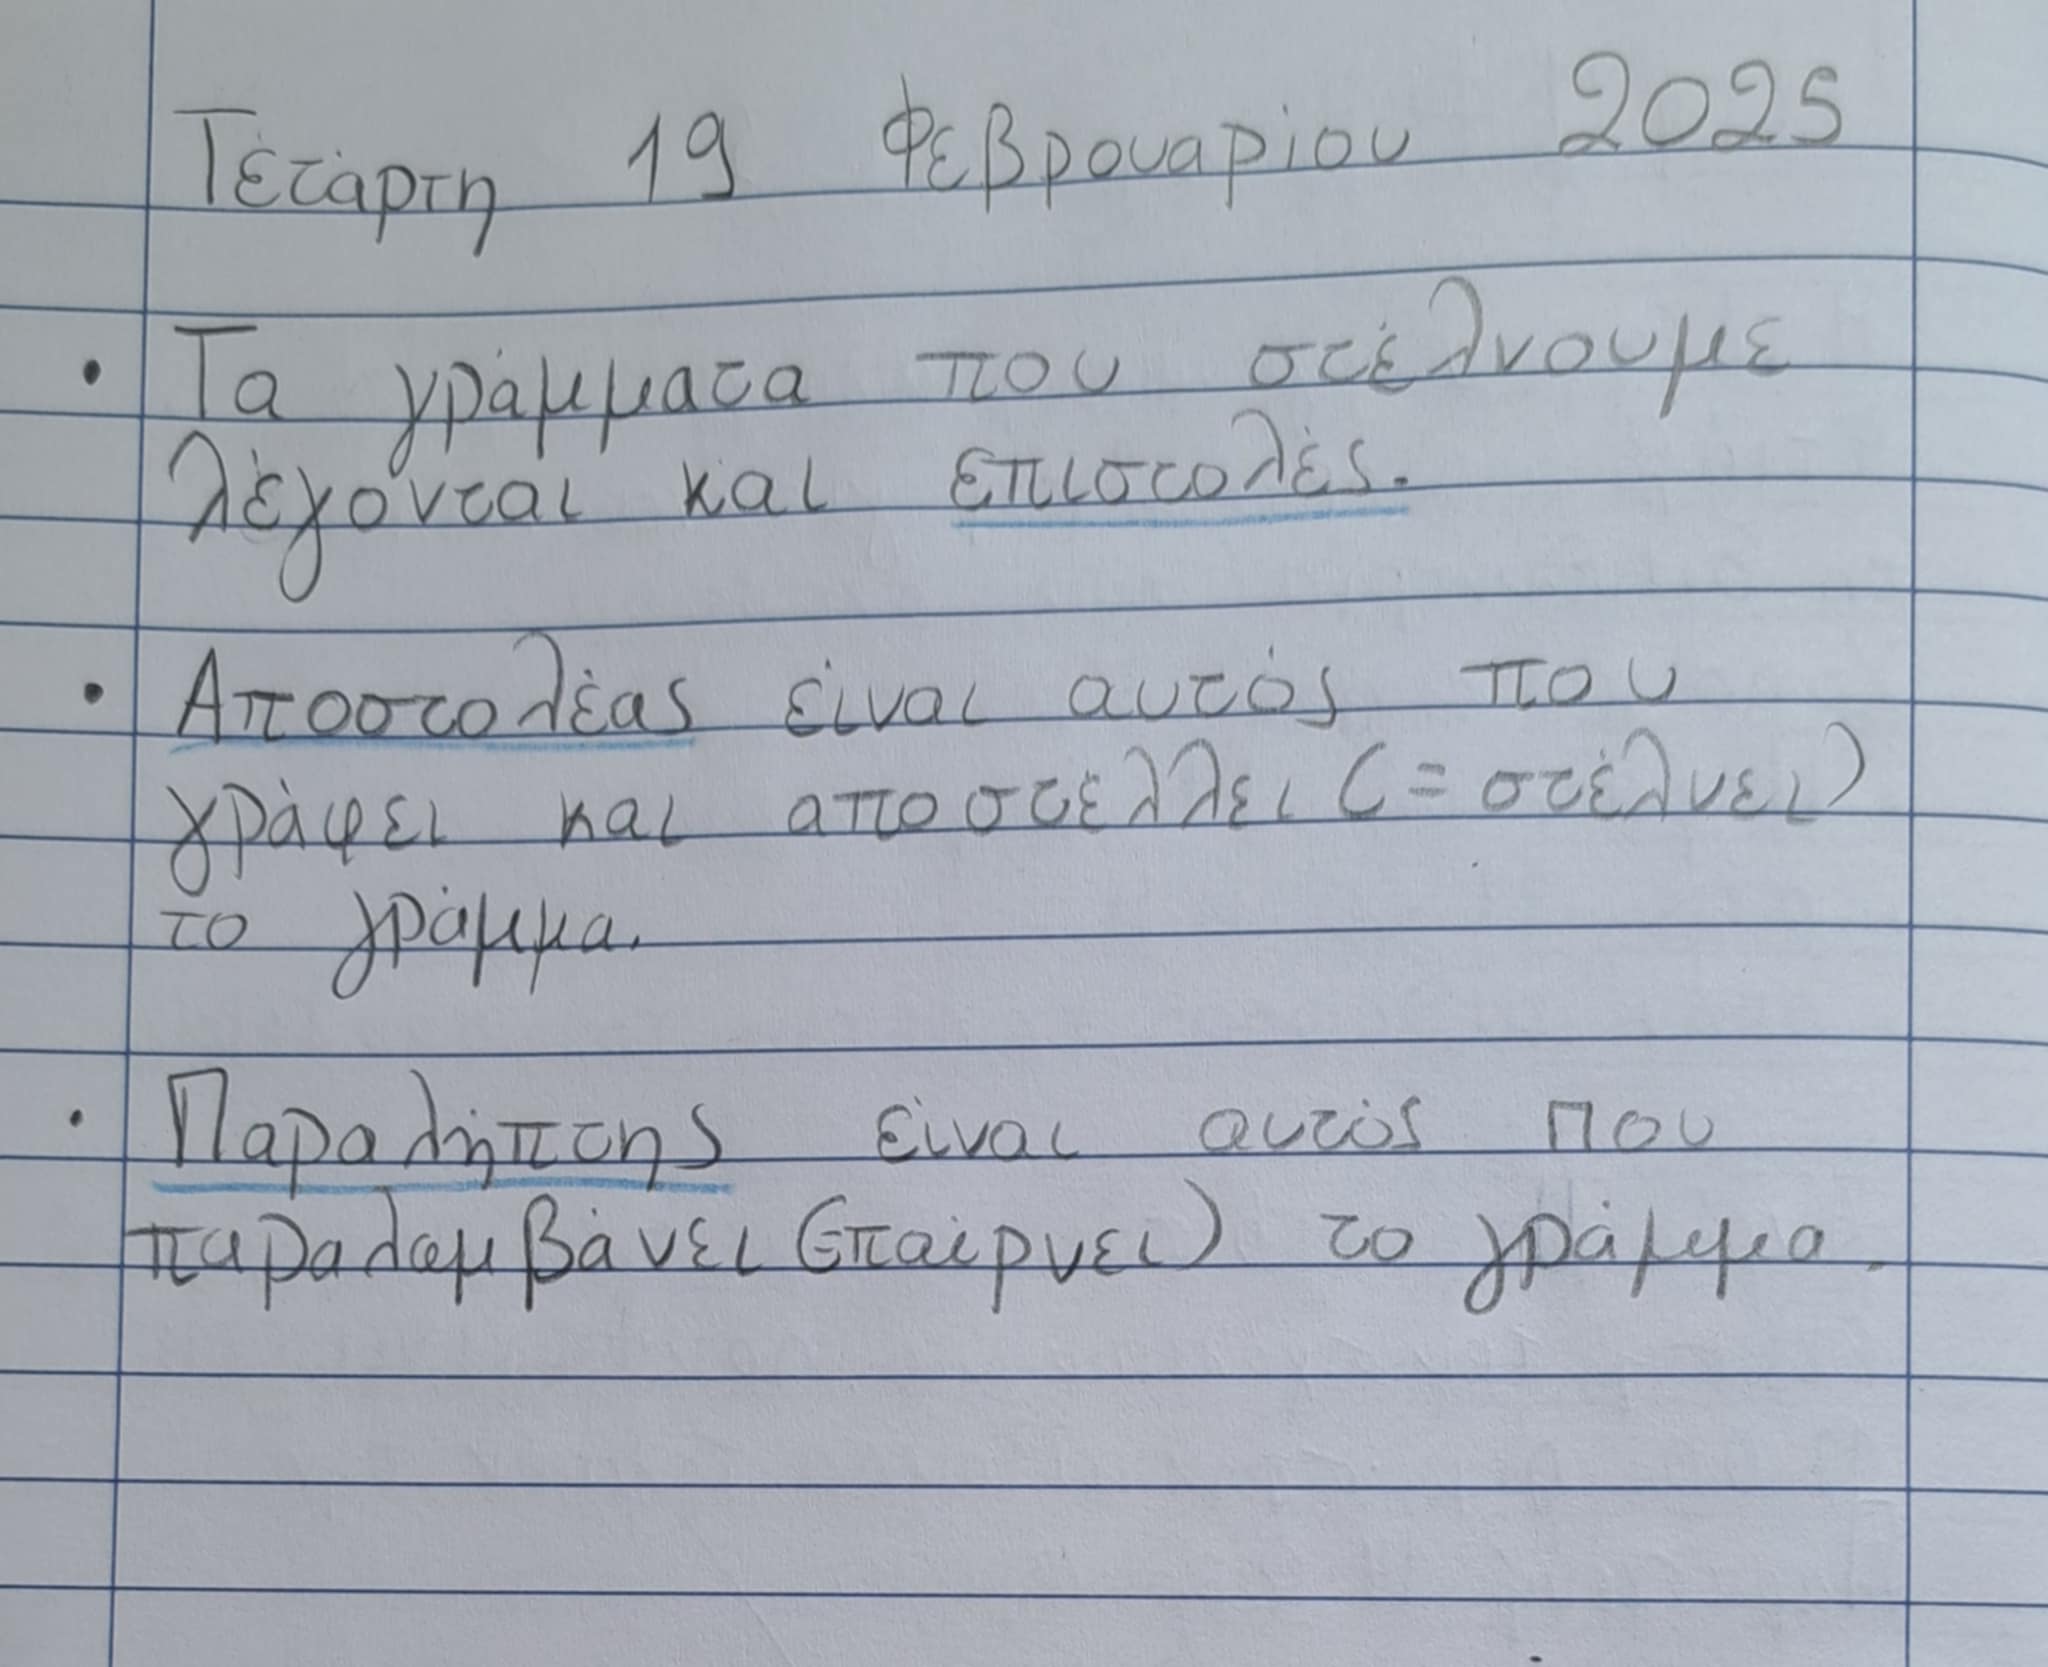 Τέτάρτη 19 Φεβρουαρίου 2025
• Τα γράμματα που στέλνουμε
λέγονται και επιστολές.
• Αποστολέας είναι αυτός που
γράφει και αποστέλλει (= στέλνει)
το γράμμα.
• Παραλήπτης είναι αυτός που
παραλαμβάνει (=παίρνει) το γράμμα.